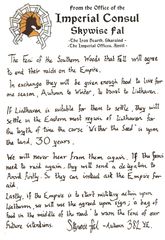 From the Office of the
Imperial Consul
Skywise Fal
-The Iron Hearth, Skarsind-
-The Imperial Offices, Anvil-
The Feni of the Southern Woods that Fell will agree
to end their raids on the Empire.
In exchange they will be given enough food to live for one
season, Autumn to Winter, to travel to Liathaven.
If Liathaven is suitable for them to settle, they will
settle in the Eastern most regions of Liathaven for
the length of time the curse 'Wither the Seed' is upon
the land, 30 years.
We will never hear from them again. If the Feni
need to raid again, they will send a delegation to
Anvil firstly. So they can instead ask the Empire for
aid.
Lastly, if the Empire is to start military action upon
Liathaven, we will use the agreed upon sign; a bag of
food in the middle of the road to warn the fens of our
future intentions.
Skywise Fal - Autumn 382 YE.